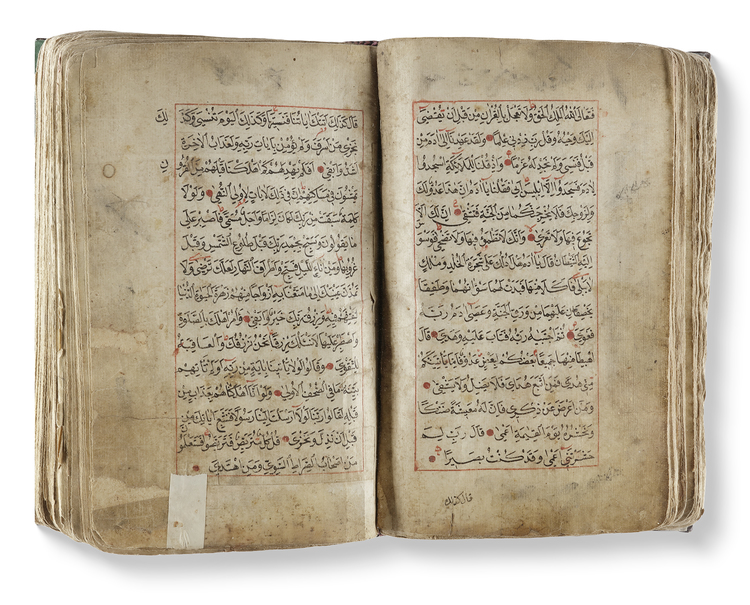 فتعالى الله الملك الحق ولا تعجل بالقران من قبل ان يقضى
اليك وحيه وقل رب زدني علما ولقد عهدنا الى ادم من
قبل فنسي ولم نجد له عزما واذ قلنا للملائكة اسجدوا
لادم فسجدوا الا ابليس ابى فقلنا يا ادم ان هذا عدو لك
ولزوجك فلا يخرجنكما من الجنة فتشقى ان لك الا
تجوع فيها ولا تعرى وانك لا تظمؤا فيها ولا تضحى فوسوس
اليه الشيطان قال يا ادم هل ادلك على شجرة الخلد وملك
لا يبلى فاكلا منها فبدت لهما سواتهما وطفقا
يخصفان عليهما من ورق الجنة وعصى ادم ربه
فغوى ثم اجتبيه ربه فتاب عليه وهدى قال
اهبطا منها جميعا بعضكم لبعض عدو فاما ياتينكم
مني هدى فمن اتبع هداي فلا يضل ولا يشقى
ومن اعرض عن ذكري فان له معيشة ضنكا
ونحشره يوم القيمة اعمى قال رب لم
حشرتني اعمى وقد كنت بصيرا
قال كذلك
قال كذلك اتتك اياتنا فنسيتها وكذلك اليوم تنسى وكذلك
نجزي من اسرف ولم يؤمن بايات ربه ولعذاب الاخرة
اشد وابقى افلم يهد لهم كم اهلكنا قبلهم من القرون
يمشون في مساكنهم ان في ذلك لايات لاولي النهى ولولا
كلمة سبقت من ربك لكان لزاما واجل مسمى فاصبر على
ما يقولون وسبح بحمد ربك قبل طلوع الشمس وقبل
غروبها ومن اناء الليل فسبح واطراف النهار لعلك ترضى ولا
تمدن عينيك الى ما متعنا به ازواجا منهم زهرة الحيوة الدنيا
لنفتنهم فيه ورزق ربك خير وابقى وامر اهلك بالصلوة
واصطبر عليها لا نسئلك رزقا نحن نرزقك والعاقبة
للتقوى وقالوا لولا ياتينا باية من ربه اولم تاتهم
بينة ما في الصحف الاولى ولو انا اهلكناهم بعذاب من
قبله لقالوا ربنا لولا ارسلت الينا رسولا فنتبع اياتك من
قبل ان نذل ونخزى قل كل متربص فتربصوا فستعلمون
من اصحاب الصراط السوي ومن اهتدى